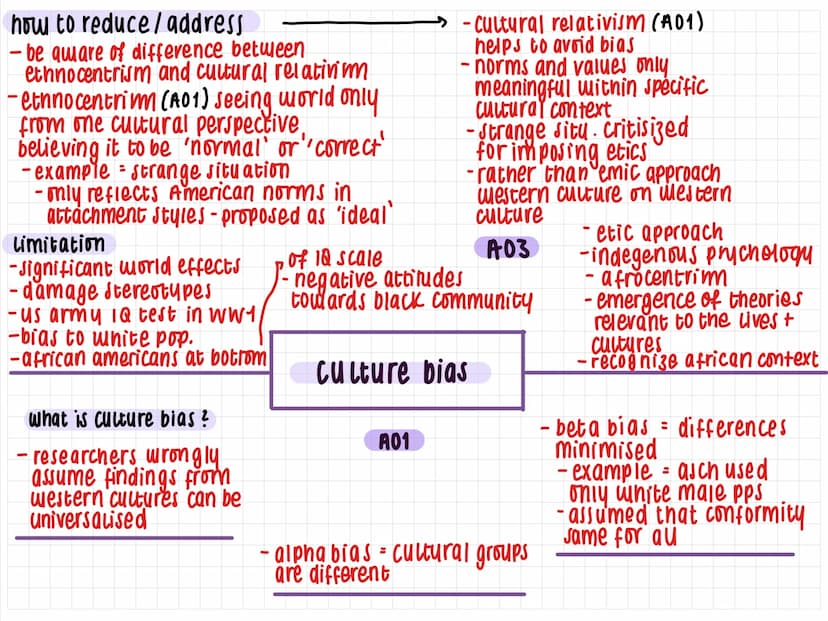 how to reduce/address
- be aware of difference between
ethnocentrism and cultural relativism
- ethnocentrim (A01) seeing world only
from one cultural perspective
believing it to be 'normal' or 'correct'
- example = strange situation
- only reflects American norms in
attachment styles - proposed as 'ideal'
- cultural relativism (A01)
helps to avoid bias
- norms and values only
meaningful within specific
cultural context
- strange situ. critisized
for imposing etics
- rather than emic approach
western culture on western
culture
limitation
- significant world effects
- damage stereotypes
- us army IQ test in WW1
- bias to white pop.
- african americans at bottom
of IQ scale
- negative attitudes
towards black community
A03
- etic approach
- indegenous psychology
- afrocentrim
- emergence of theories
relevant to the lives +
cultures
- recognize african context
culture bias
what is culture bias?
- researchers wrongly
assume findings from
western cultures can be
universalised
A01
- alpha bias = cultural groups
are different
- beta bias = differences
minimised
- example = asch used
only white male pps
- assumed that conformity
same for all